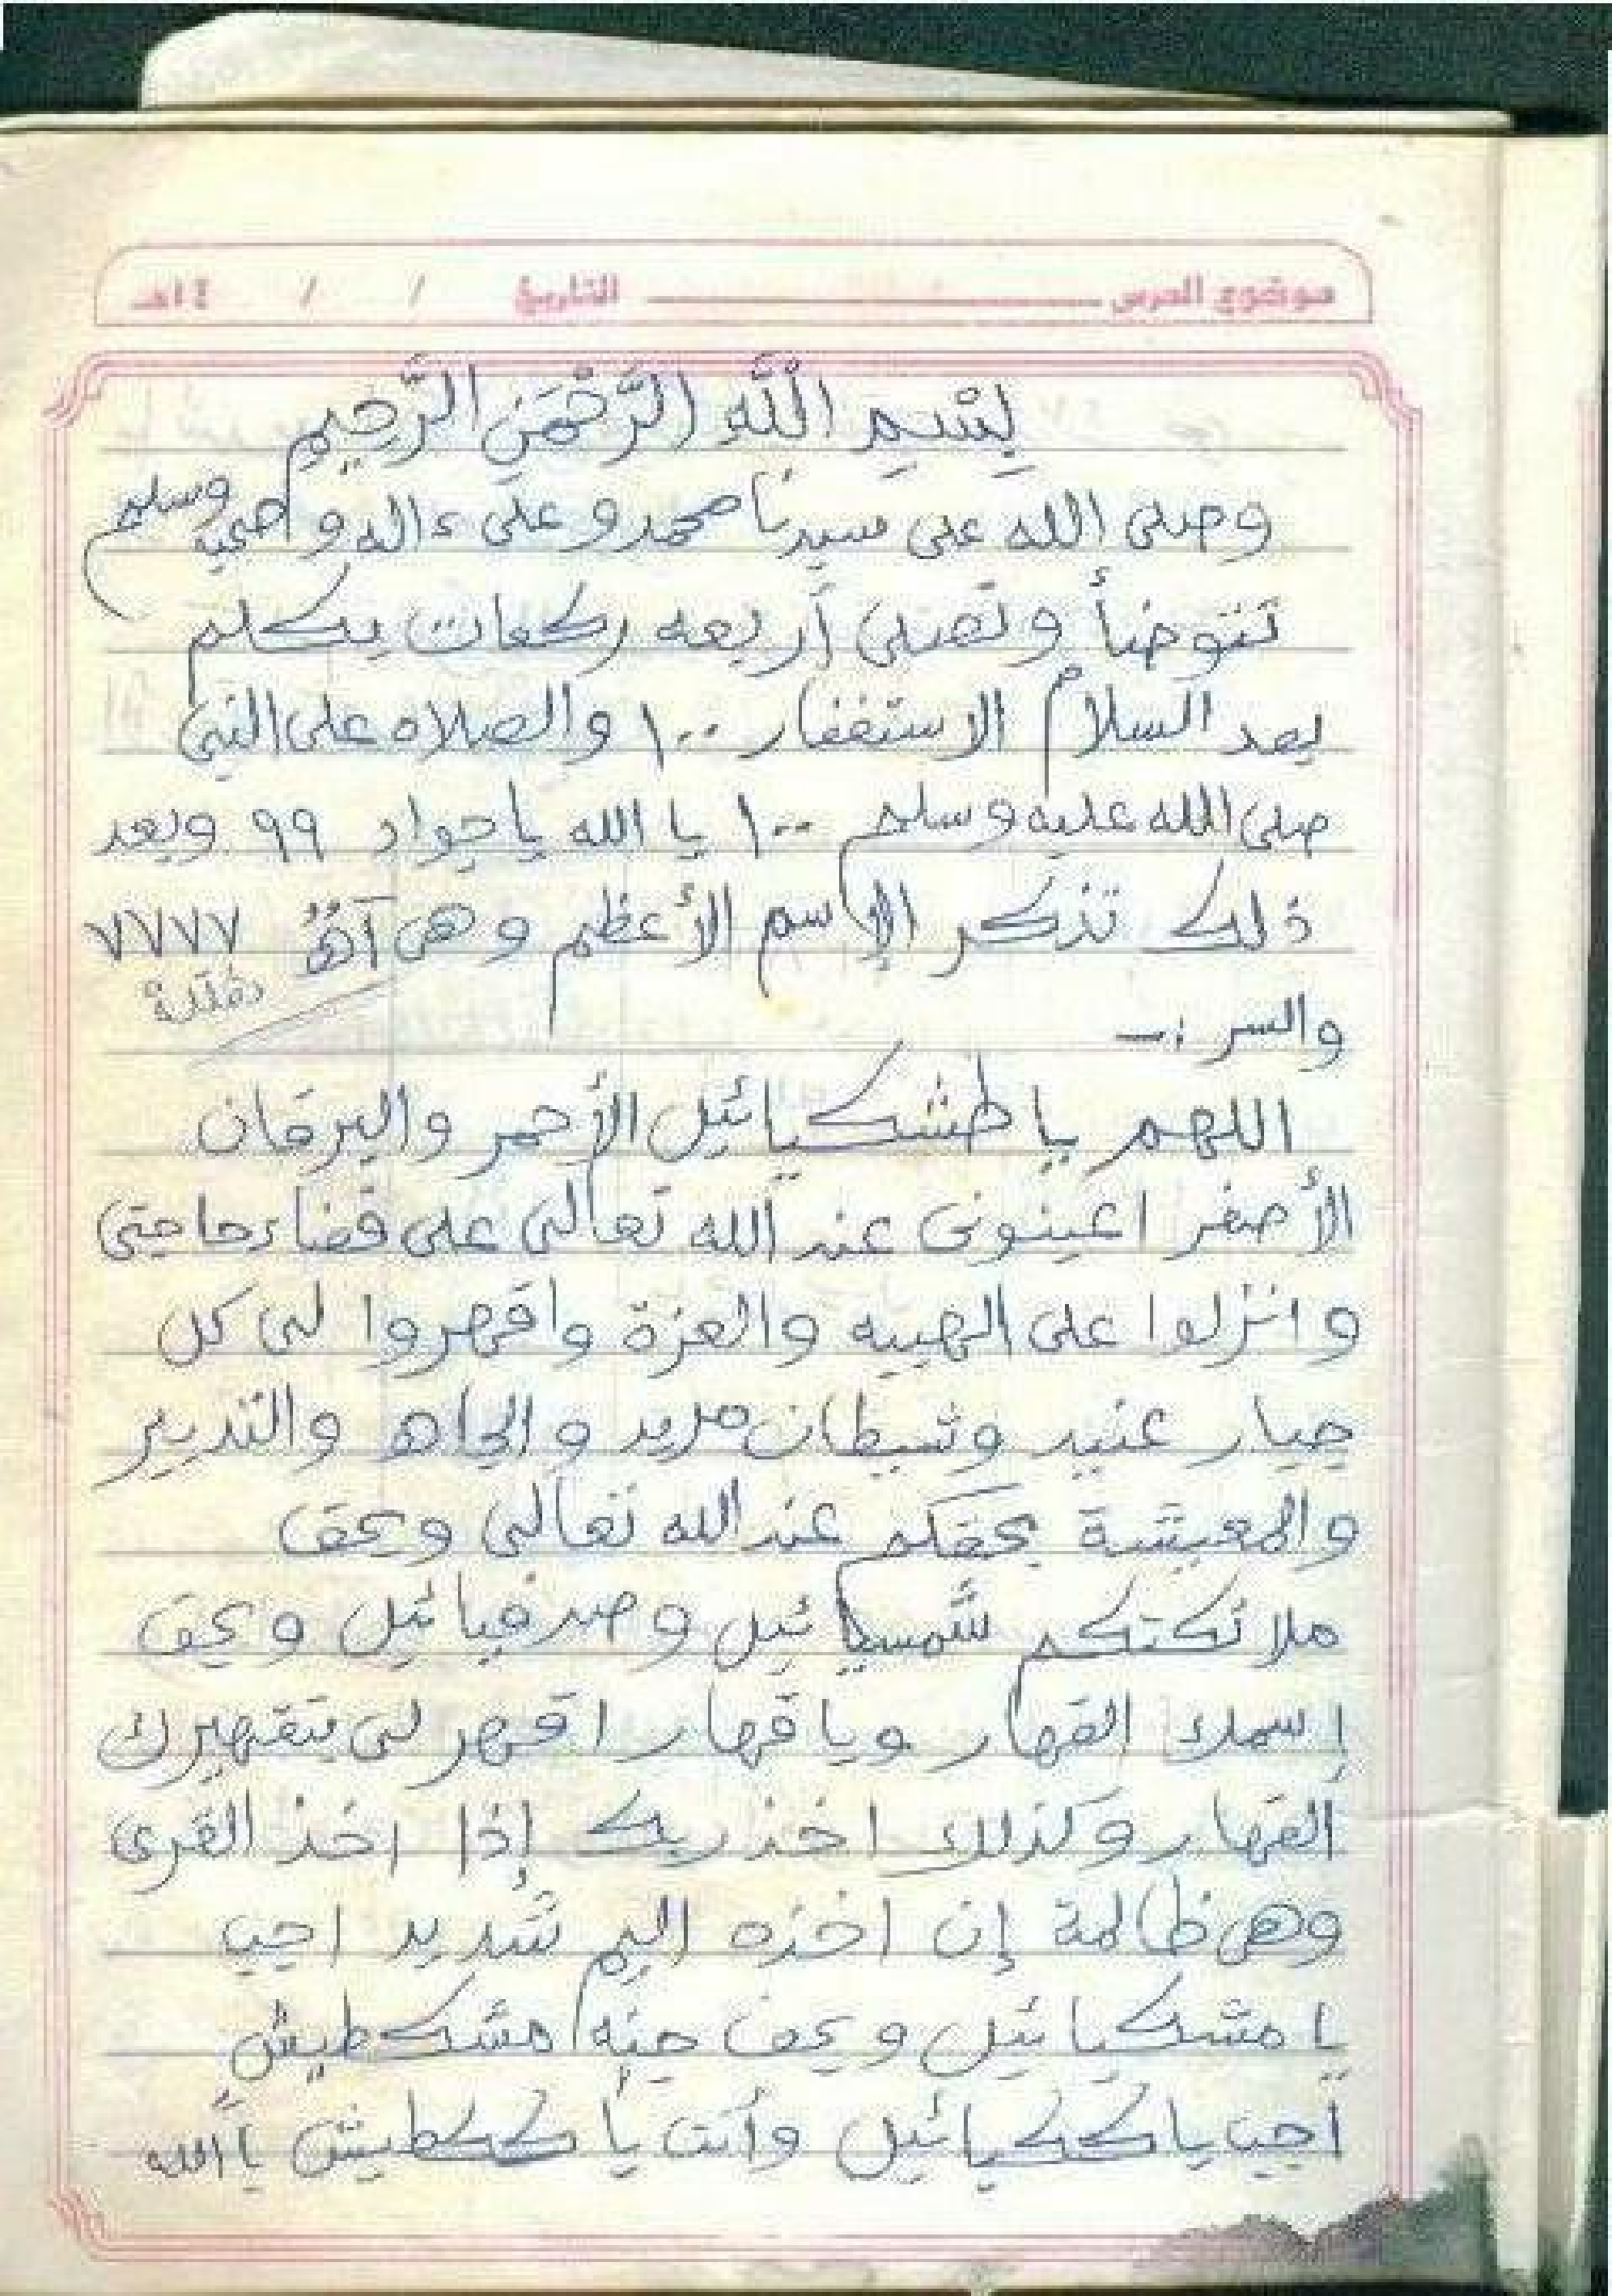 موضوع الدرس ــــــــ التاريخ / / ١٤هـ
بِسْمِ اللَّهِ الرَّحْمَنِ الرَّحِيمِ
وصلى الله على سيدنا محمد وعلى ءاله وصحبه وسلم
تتوضأ وتصلى أربعه ركعات يكلم
بعد السلام الاستغفار ١٠٠ والصلاه على النبى
صلى الله عليه وسلم ١٠٠ يا الله يا جواد ٩٩ وبعد
ذلك تذكر الإسم الأعظم وهى آهٌ ٧٧٧٧
والسر :ـ
اللهم يا طشكيائيل الأحمر واليرقان
الأصفر اعينونى عند الله تعالى على قضاء حاجتى
وانزلوا على الهيبه والعزة واقهروا لى كل
جبار عنيد وشيطان مريد والجاه والتدبير
والمعيشة بحقكم عند الله تعالى وبحق
ملائكتكم شمسيائيل وصرفيائيل وبحق
إسمك القهار ويا قهار اقهر لى بتقهيرك
القهار وكذلك اخذ ربك إذا اخذ القرى
وهى ظالمة إن اخذه اليم شديد اجب
يا مشكيائيل وبحق مشكطيش
أجب يا ككيائيل وأنت يا ككطيش يا الله